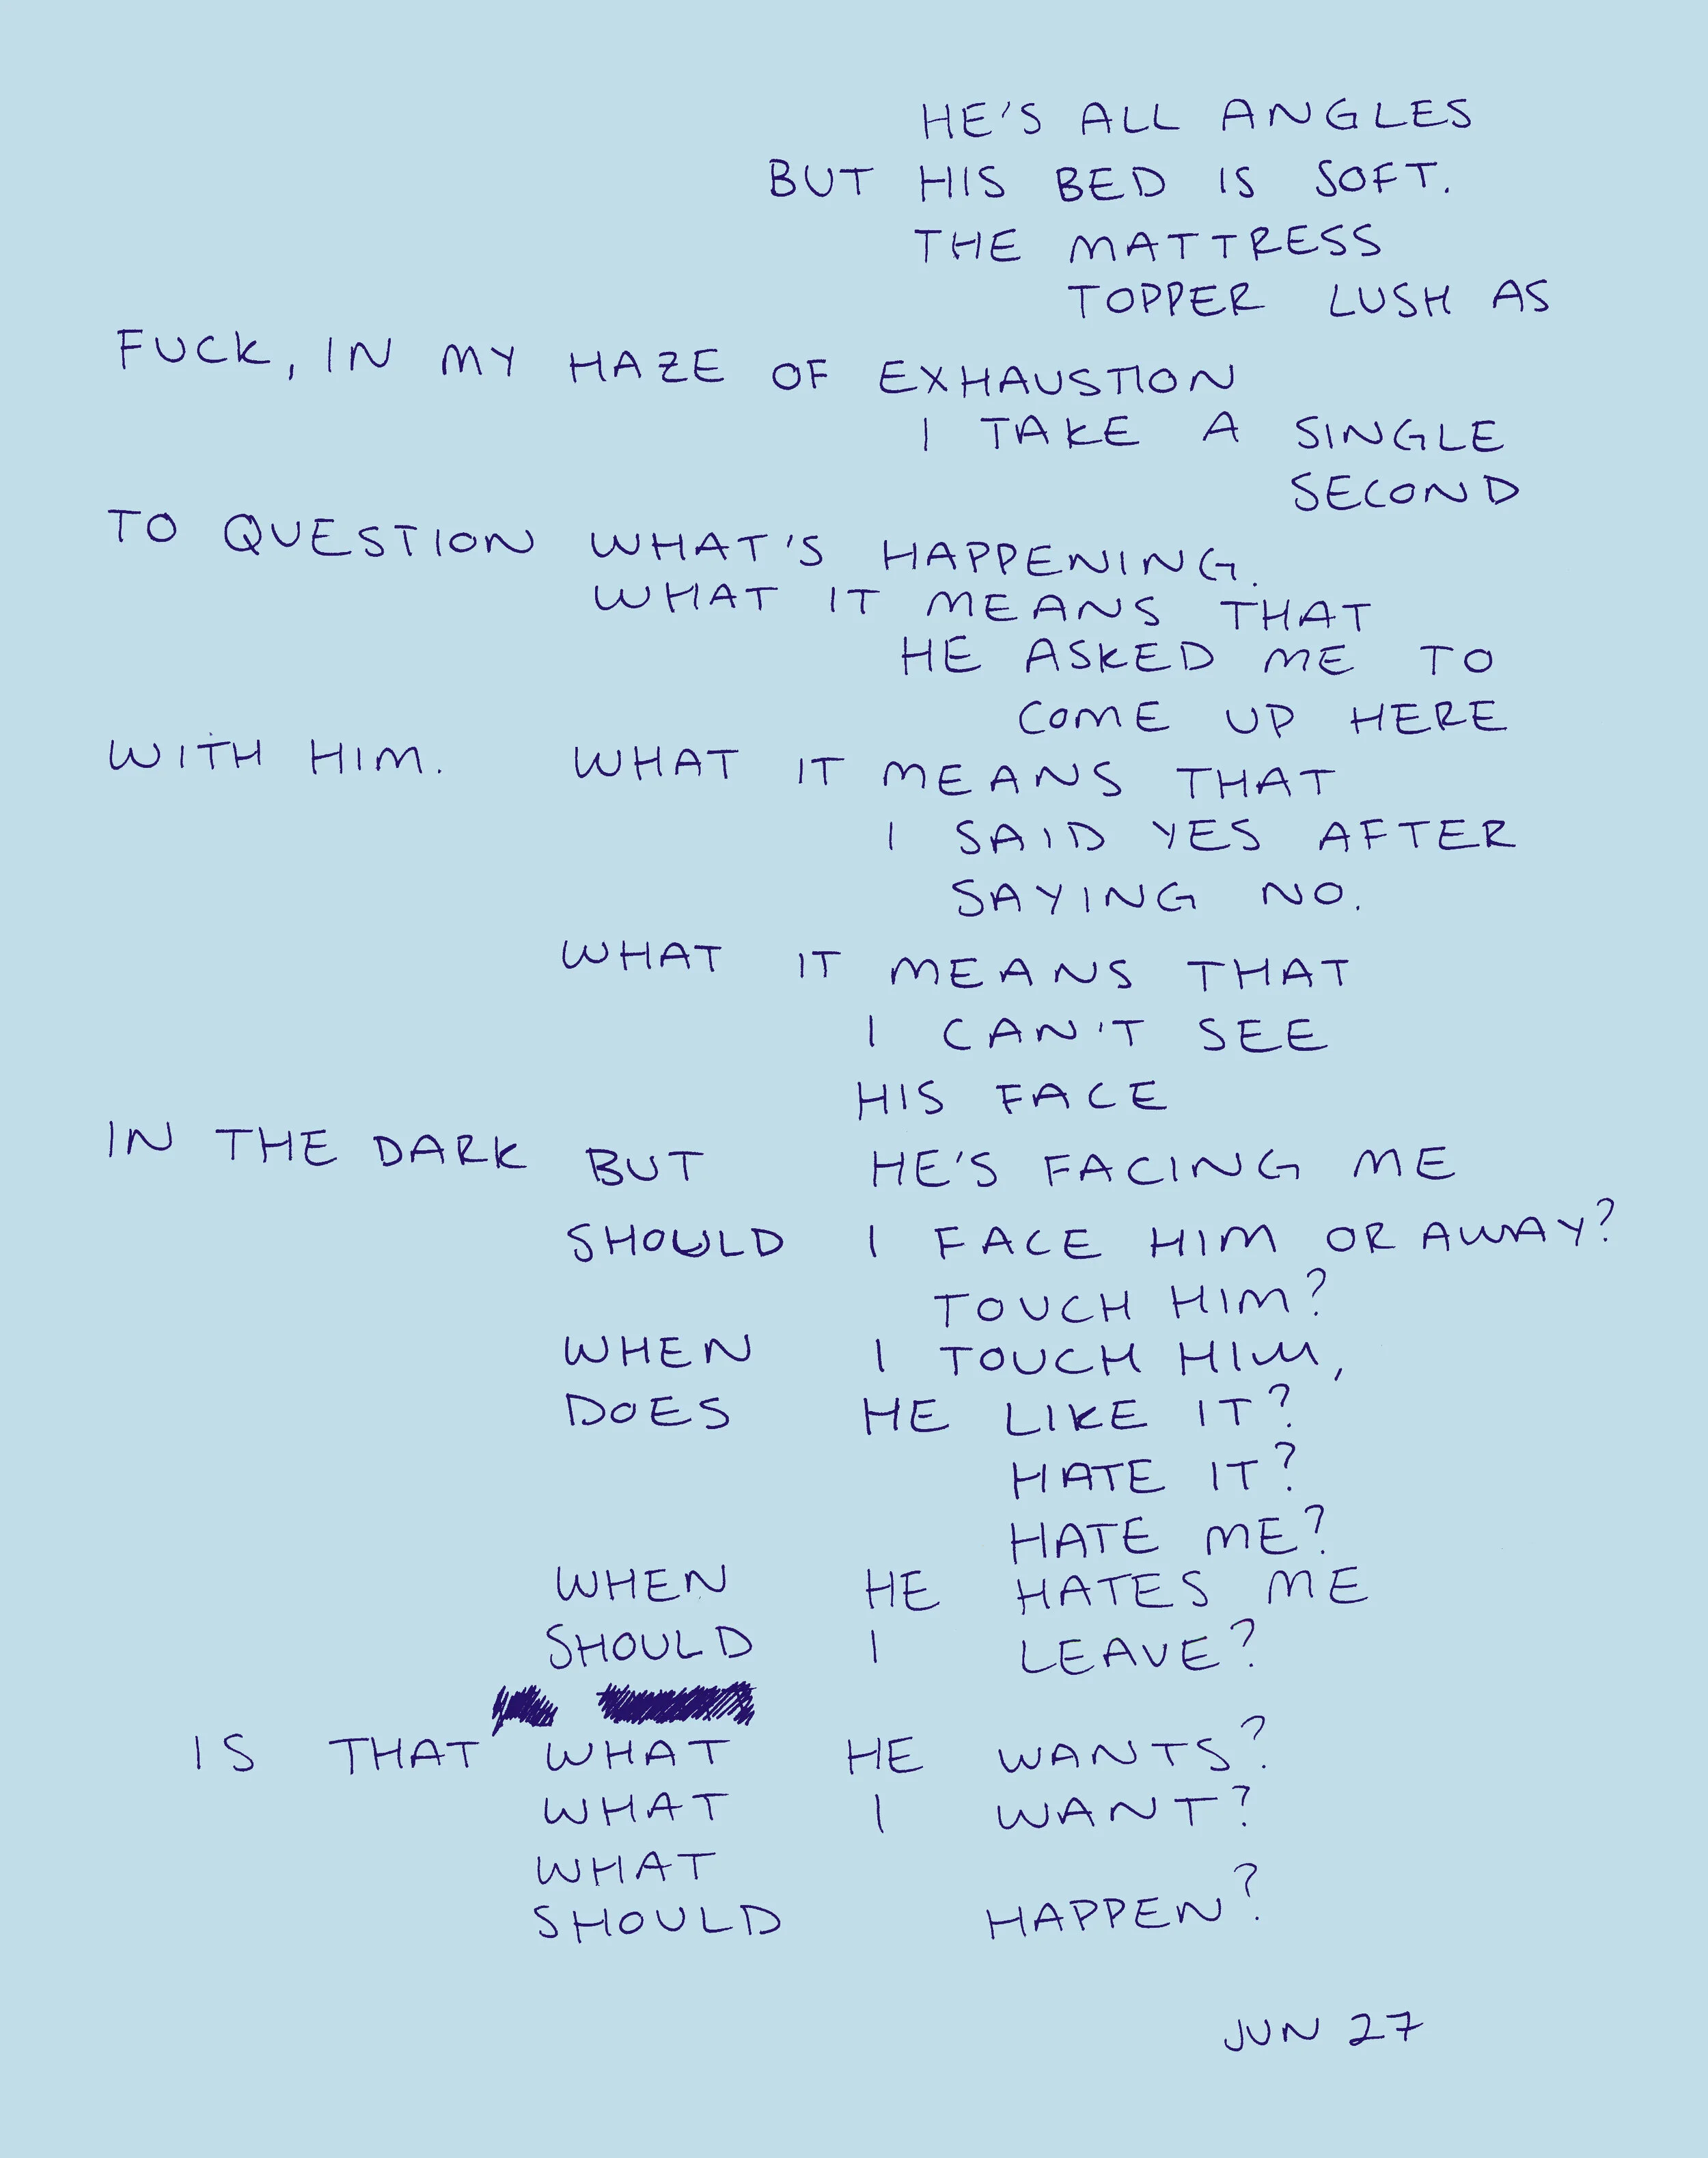 HE'S ALL ANGLES
BUT HIS BED IS SOFT.
THE MATTRESS
TOPPER LUSH AS
FUCK, IN MY HAZE OF EXHAUSTION
I TAKE A SINGLE
SECOND
TO QUESTION WHAT'S HAPPENING.
WHAT IT MEANS THAT
HE ASKED ME TO
COME UP HERE
WITH HIM. WHAT IT MEANS THAT
I SAID YES AFTER
SAYING NO.
WHAT IT MEANS THAT
I CAN'T SEE
HIS FACE
IN THE DARK BUT HE'S FACING ME
SHOULD I FACE HIM OR AWAY?
TOUCH HIM?
WHEN I TOUCH HIM,
DOES HE LIKE IT?
HATE IT?
HATE ME?
WHEN HE HATES ME
SHOULD I LEAVE?
IS THAT WHAT HE WANTS?
WHAT I WANT?
WHAT
SHOULD HAPPEN?
JUN 27